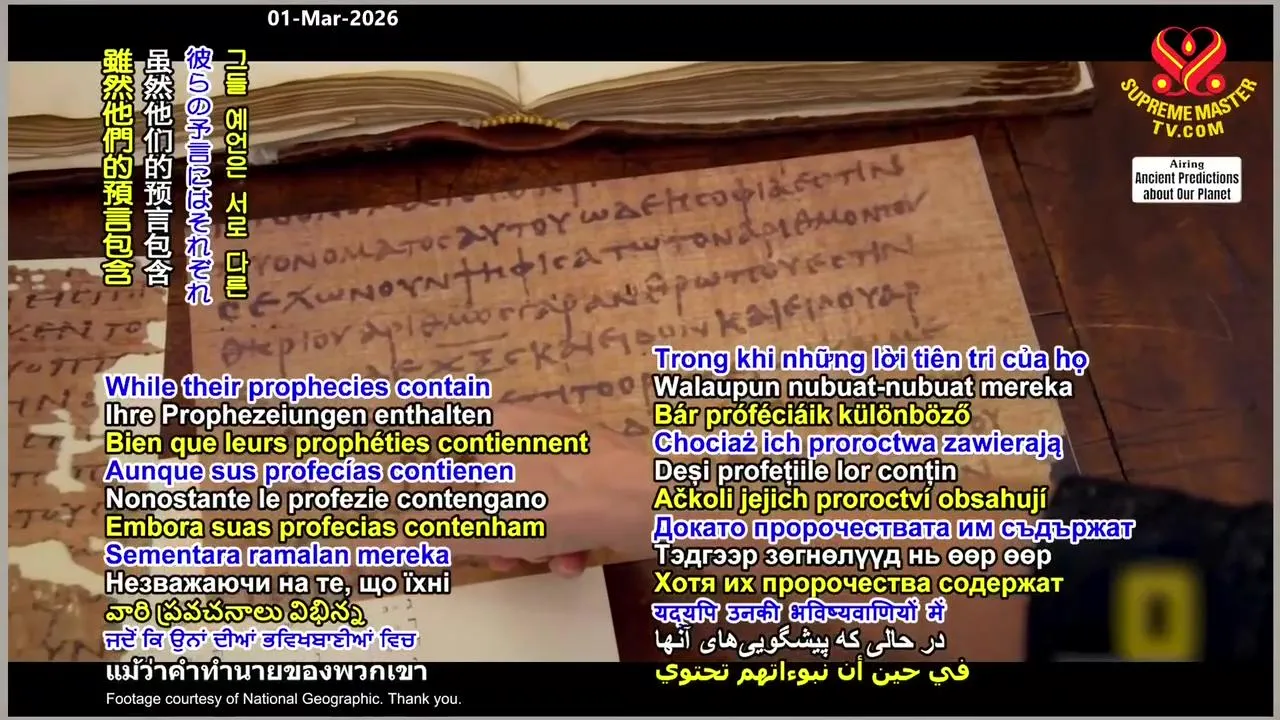 01-Mar-2026
SUPREME MASTER
TV.COM
Airing
Ancient Predictions
about Our Planet
雖然他們的預言包含
虽然他们的预言包含
彼らの予言にはそれぞれ
그들 예언은 서로 다른
ΟΝΟΜΑΤΟϹΑΥΤΟΥωΔΕΗϹΟΦΙΑΕϹΤΙΝ
While their prophecies contain
Ihre Prophezeiungen enthalten
Bien que leurs prophéties contiennent
Aunque sus profecías contienen
Nonostante le profezie contengano
Embora suas profecias contenham
Sementara ramalan mereka
Незважаючи на те, що їхні
వారి ప్రవచనాలు విభిన్న
ਜਦੋਂ ਕਿ ਉਨਾਂ ਦੀਆਂ ਭਵਿਖਬਾਣੀਆਂ ਵਿਚ
แม้ว่าคำทำนายของพวกเขา
Trong khi những lời tiên tri của họ
Walaupun nubuat-nubuat mereka
Bár próféciáik különböző
Chociaż ich proroctwa zawierają
Deși profețiile lor conțin
Ačkoli jejich proroctví obsahují
Докато пророчествата им съдържат
Тэдгээр зөгнөлүүд нь өөр өөр
Хотя их пророчества содержат
यद्यपि उनकी भविष्यवाणियों में
در حالی که پیشگویی‌های آنها
في حين أن نبوءاتهم تحتوي
Footage courtesy of National Geographic. Thank you.